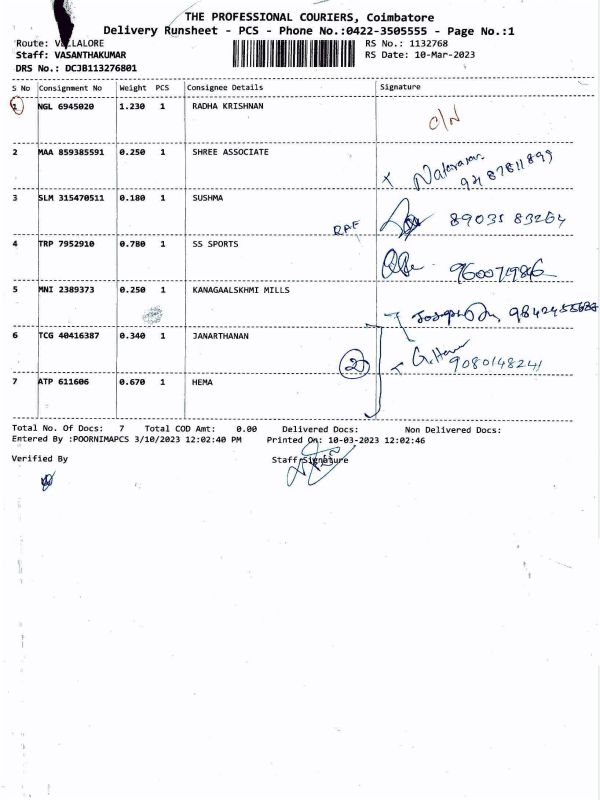 THE PROFESSIONAL COURIERS, Coimbatore
Delivery Runsheet - PCS - Phone No.:0422-3505555 - Page No.:1
Route: LALORE RS No.: 1132768
Staff: VASANTHAKUMAR RS Date: 10-Mar-2023
DRS No.: DCJB113276801
S No Consignment No Weight PCS Consignee Details Signature
1 NGL 6945020 1.230 1 RADHA KRISHNAN
O/N
2 MAA 859385591 0.250 1 SHREE ASSOCIATE
3 SLM 315470511 0.180 1 SUSHMA
89035 83264
4 TRP 7952910 0.780 1 SS SPORTS
5 MNI 2389373 0.250 1 KANAGAALSKHMI MILLS
6 TCG 40416387 0.340 1 JANARTHANAN
2
9080148241
7 ATP 611606 0.670 1 HEMA
Total No. Of Docs: 7 Total COD Amt: 0.00 Delivered Docs: Non Delivered Docs:
Entered By :POORNIMAPCS 3/10/2023 12:02:40 PM Printed On: 10-03-2023 12:02:46
Verified By Staff Signature